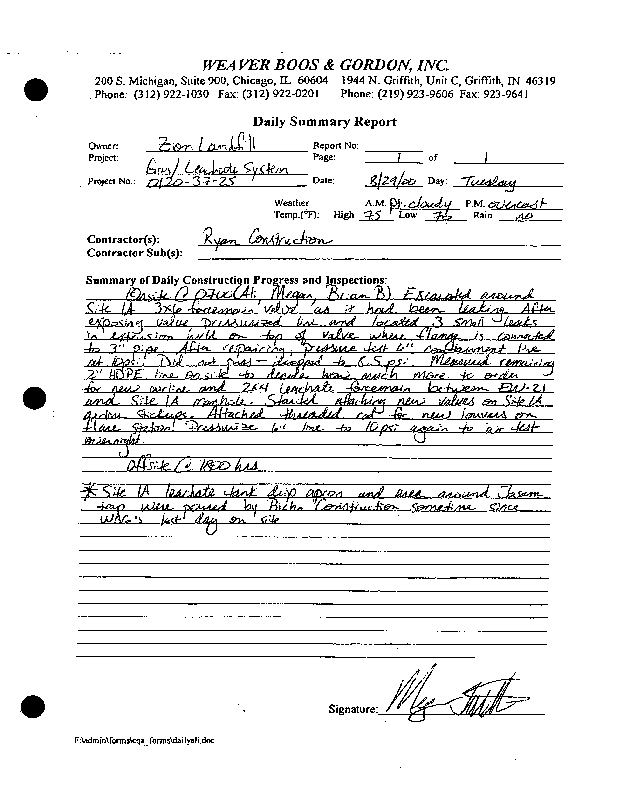 WEAVER BOOS & GORDON, INC.
200 S. Michigan, Suite 900, Chicago, IL 60604 1944 N. Griffith, Unit C, Griffith, IN 46319
Phone: (312) 922-1030 Fax: (312) 922-0201 Phone: (219) 923-9606 Fax: 923-9641
Daily Summary Report
Owner: Zion Landfill Report No:
Project: Gas/Leachate System Page: 1 of 1
Project No.: 0120-37-25 Date: 8/29/00 Day: Tuesday
Weather A.M. Pt. cloudy P.M. overcast
Temp.(°F): High 75 Low Rain no
Contractor(s): Ryan Construction
Contractor Sub(s):
Summary of Daily Construction Progress and Inspections:
Onsite @ Megan, Brian B) Excavated around
Site 1A 3x6 forcemain valve as it had been leaking. After
exposing valve pressurized line and located 3 small leaks
in extrusion weld on top of valve where flange is connected
to 3" pipe. After repairing, pressure test 6" containment line
at 10psi. Did not pass - dropped to 6.5 psi. Measured remaining
2" HDPE line onsite to decide how much more to order
for new airline and 2x4 leachate forcemain between EW-21
and Site 1A manhole. Started attaching new valves on Site 1A
stickups. Attached threaded for new louvers on
flare station. Pressurize 6" line to 10psi again to air test
overnight.
Offsite @ 1800 hrs
* Site 1A leachate tank drip apron and area around
were poured by Construction sometime since
WBG's last day on site
Signature:
F:\admin\forms\cqa_forms\dailyali.doc